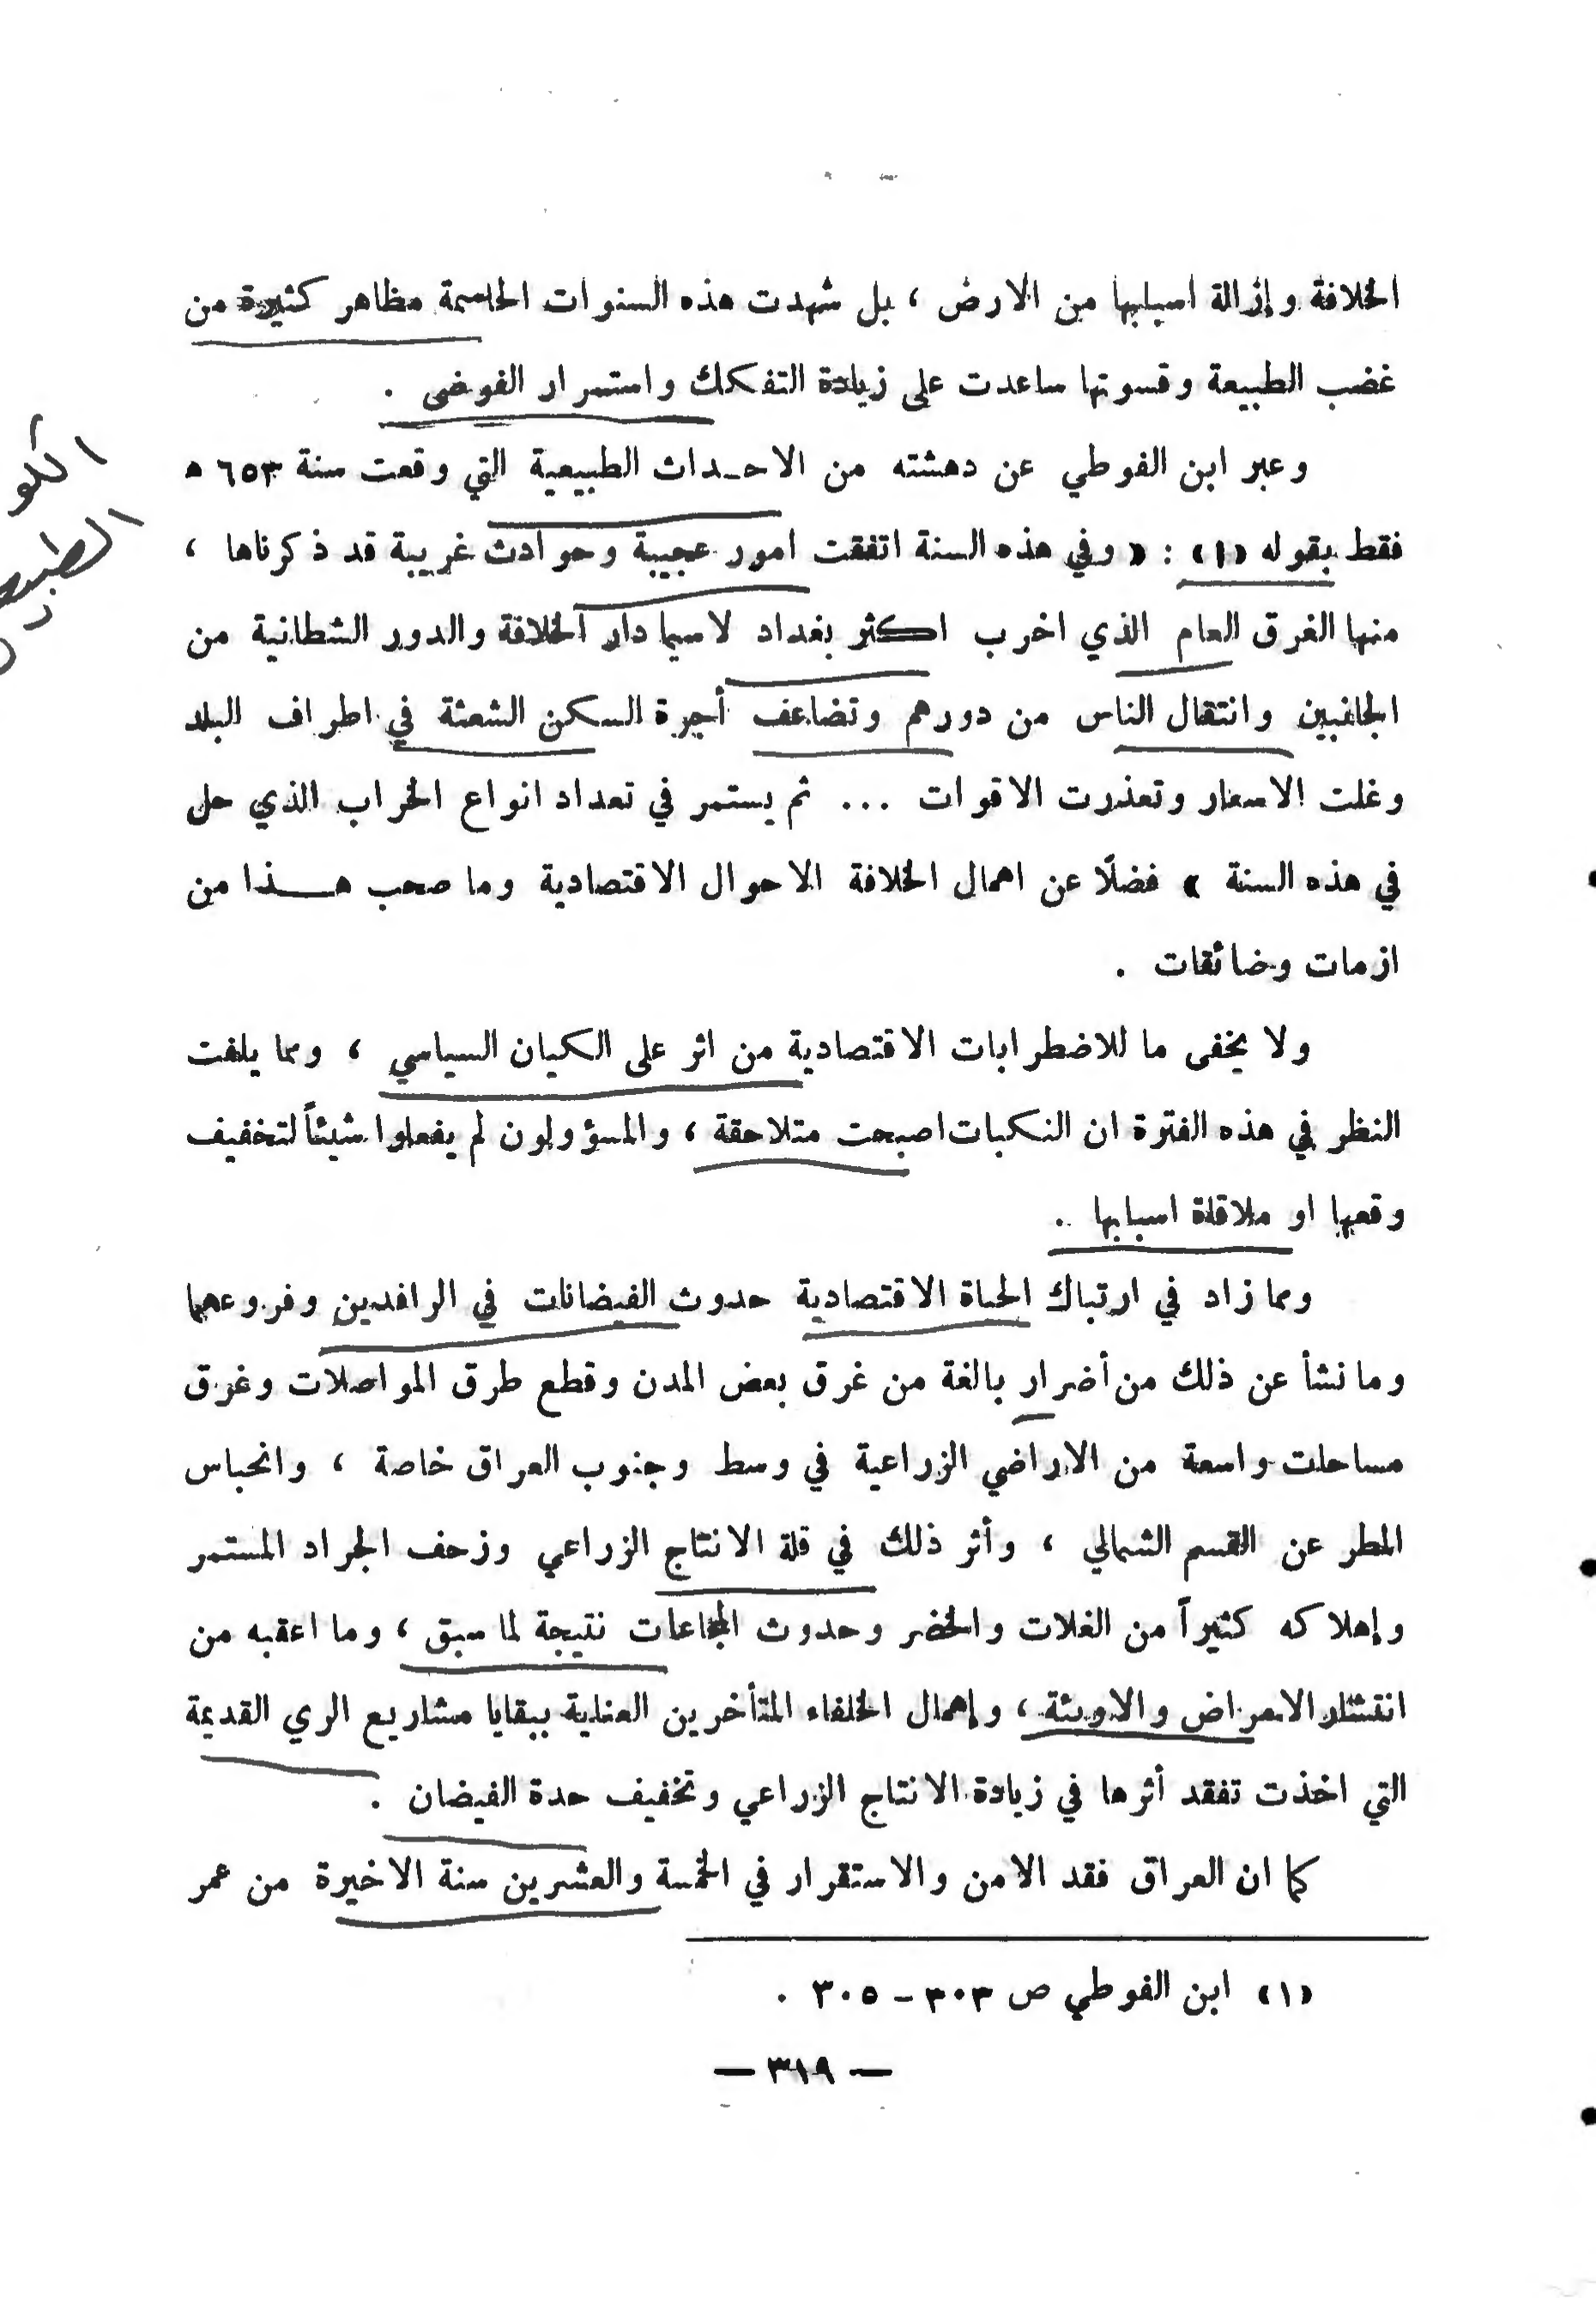 الخلافة وإزالة اسبابها من الارض ، بل شهدت هذه السنوات الحاسمة مظاهر كثيرة من
غضب الطبيعة وقسوتها ساعدت على زيادة التفكك واستمرار الفوضى .
وعبر ابن الفوطي عن دهشته من الاحـداث الطبيعية التي وقعت سنة ٦٥٣ ه
فقط بقوله (١) : « وفي هذه السنة اتفقت امور عجيبة وحوادث غريبة قد ذكرناها ،
منها الغرق العام الذي اخرب اكثر بغداد لاسيما دار الخلافة والدور الشطانية من
الجانبين وانتقال الناس من دورهم وتضاعف أجرة السكن الشعثة في اطراف البلد
وغلت الاسعار وتعذرت الاقوات ... ثم يستمر في تعداد انواع الخراب الذي حل
في هذه السنة » فضلًا عن اهمال الخلافة الاحوال الاقتصادية وما صحب هـــذا من
ازمات وضائقات .
ولا يخفى ما للاضطرابات الاقتصادية من اثر على الكيان السياسي ، ومما يلفت
النظر في هذه الفترة ان النكبات اصبحت متلاحقة ، والمسؤولون لم يفعلوا شيئاً لتخفيف
وقعها او ملاقاة اسبابها .
ومما زاد في ارتباك الحياة الاقتصادية حدوث الفيضانات في الرافدين وفروعهما
وما نشأ عن ذلك من أضرار بالغة من غرق بعض المدن وقطع طرق المواصلات وغرق
مساحات واسعة من الاراضي الزراعية في وسط وجنوب العراق خاصة ، وانحباس
المطر عن القسم الشمالي ، وأثر ذلك في قلة الانتاج الزراعي وزحف الجراد المستمر
وإهلاكه كثيراً من الغلات والخضر وحدوث المجاعات نتيجة لما سبق ، وما اعقبه من
انتشار الامراض والاوبئة ، وإهمال الخلفاء المتأخرين العناية ببقايا مشاريع الري القديمة
التي اخذت تفقد أثرها في زيادة الانتاج الزراعي وتخفيف حدة الفيضان .
كما ان العراق فقد الامن والاستقرار في الخمسة والعشرين سنة الاخيرة من عمر
(١) ابن الفوطي ص ٣٠٣ – ٣٠٥ .
— ٣١٩ —